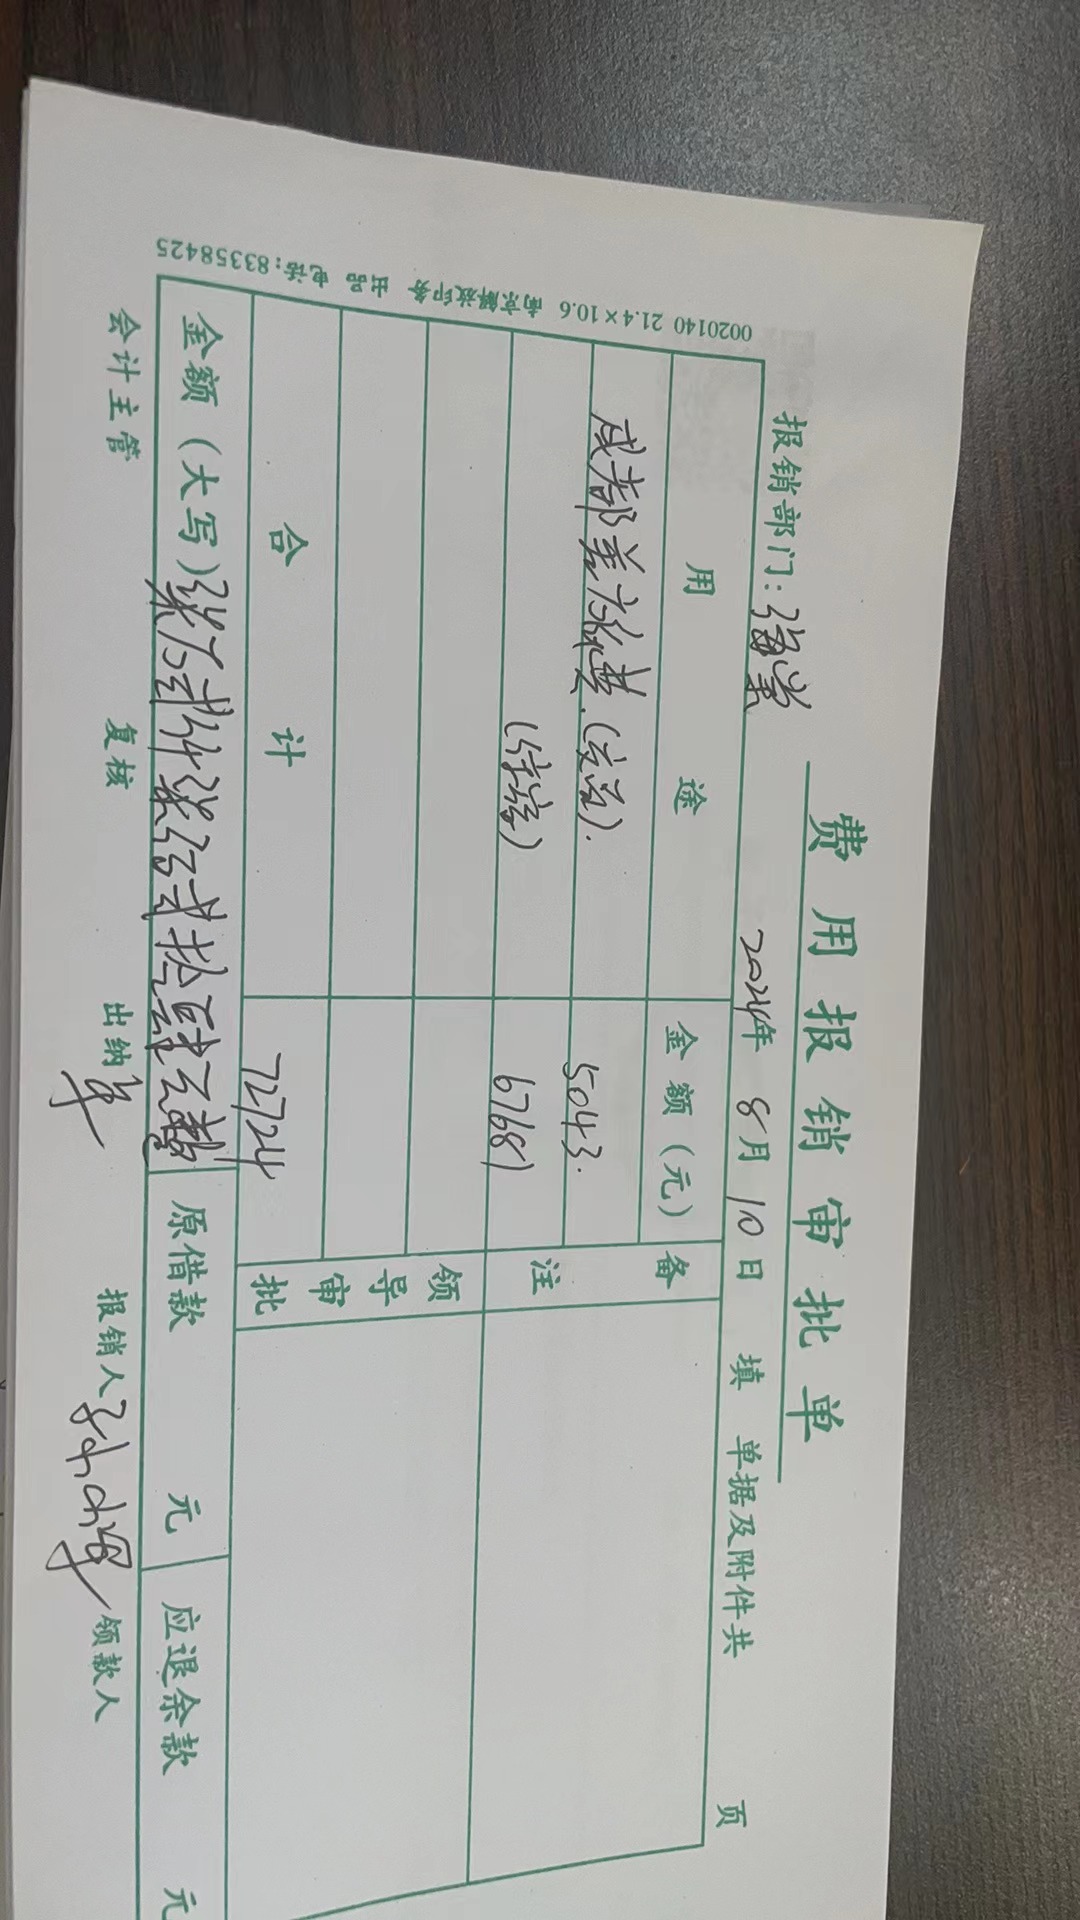 费用报销审批单
报销部门:
2024年 8月 10日 填 单据及附件共 页
用途 金额(元) 备注
成都差旅费.(交通). 5043.
(住宿) 67681
合计 72724 领导审批
金额(大写)柒万贰仟柒佰贰拾肆元整 原借款 元 应退余款 元
会计主管 复核 出纳 报销人 领款人
0020140 21.4×10.6 南京解放印务 出品 电话:83358425